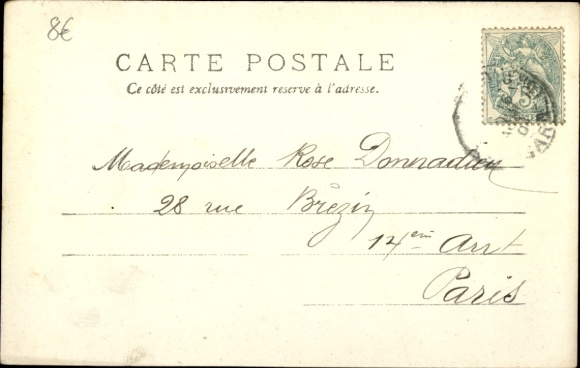 8€
CARTE POSTALE
Ce côté est exclusivement reservé à l'adresse.
Mademoiselle Rose Donnadieu
28 rue Brézin
14em Arrt
Paris